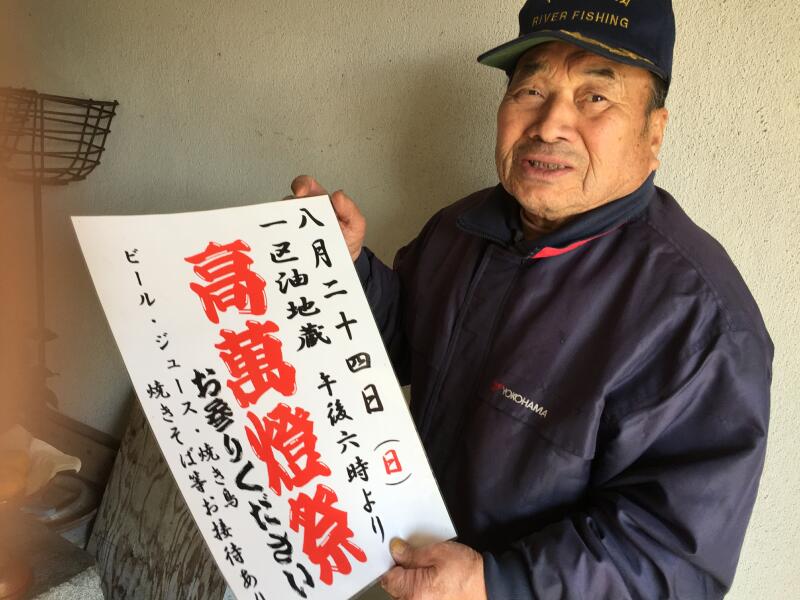 RIVER FISHING
八月二十四日(日)
午後六時より
一区油地蔵
高萬燈祭
お参りください
ビール・ジュース・焼き鳥
焼きそば等お接待あり
YOKOHAMA